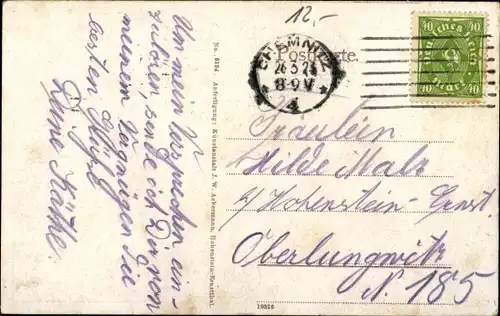 12,-
Postkarte.
CHEMNITZ
26.3.23
8-9 V
* 4 *
40 40
Deutsches Reich
40 Mark 40
Um mein Versprechen ein-
zulösen, sende ich Dir von
meinem Vergnügen die
besten Grüße
Deine Käthe.
No. 6164. Anfertigung: Kunstanstalt J. W. Ackermann, Hohenstein-Ernstthal.
Fräulein
Hilde Malz
b/ Hohenstein-Ernst.
Oberlungwitz
N. 185
19316